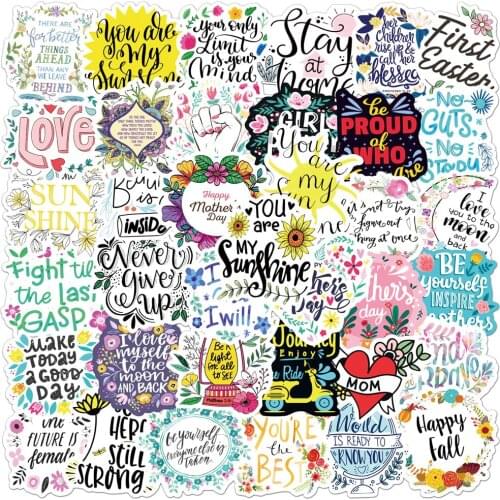 There are
far better
THINGS
AHEAD
THAN ANY
WE LEAVE
BEHIND
You are
My
Sunshine
Your only
Limit is
your
Mind
Stay
at
home
her
Children
rise up &
call her
blessed
First
Easter
LOVE
GIRL
You are
my
be
PROUD OF
WHO
are
NO
GUTS,
NO
SUN
SHINE
is
INSIDE
Happy
Mother
Day
YOU are
MY
Sunshine
not try
figure out
thing at once
I
love
you to the
moon
and
back
Fight til
the las
GASP.
Never
Give
up
I
I will.
her's
Day
hers
day
BE
yourself
INSPIRE
others
MAKE
TODAY
A GOOD
DAY
I love
myself
to the
moon
AND BACK
Be a
light
for all
to see
Matthew 5:16
Journey
ENJOY
Ride
MOM
FUTURE IS
female
HERE
STILL
STRONG
be yourself
everyone else is
taken.
YOU'RE
the
BEST
World
IS READY TO
KNOW YOU
Happy
Fall